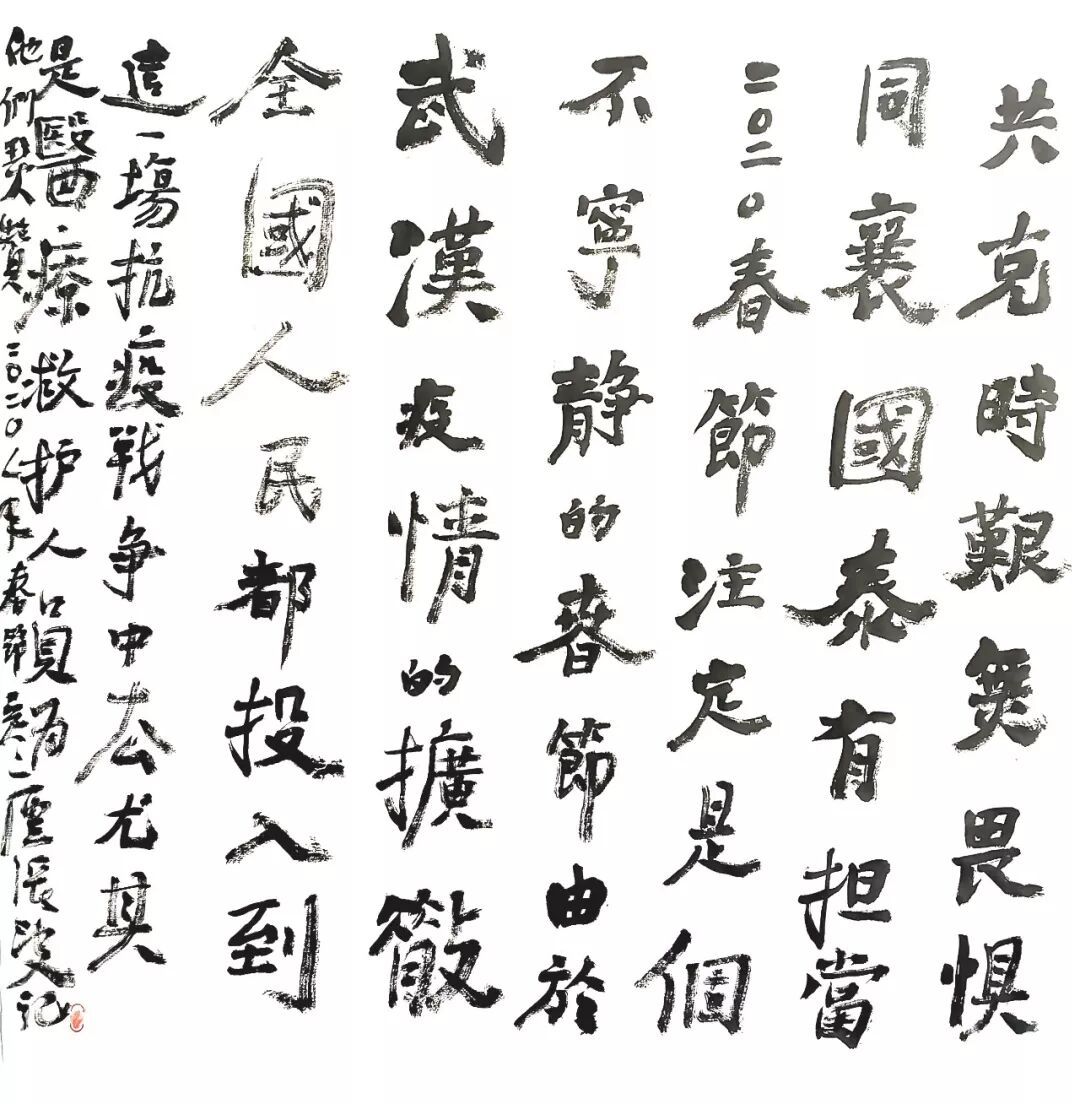 共克時艱無畏懼
同襄國泰有担當
二〇二〇春節注定是個
不寧静的春節由於
武漢疫情的擴散
全國人民都投入到
這一場抗疫戰争中去尤其
是醫療救护人員
他們 贊二〇二〇年春節 記